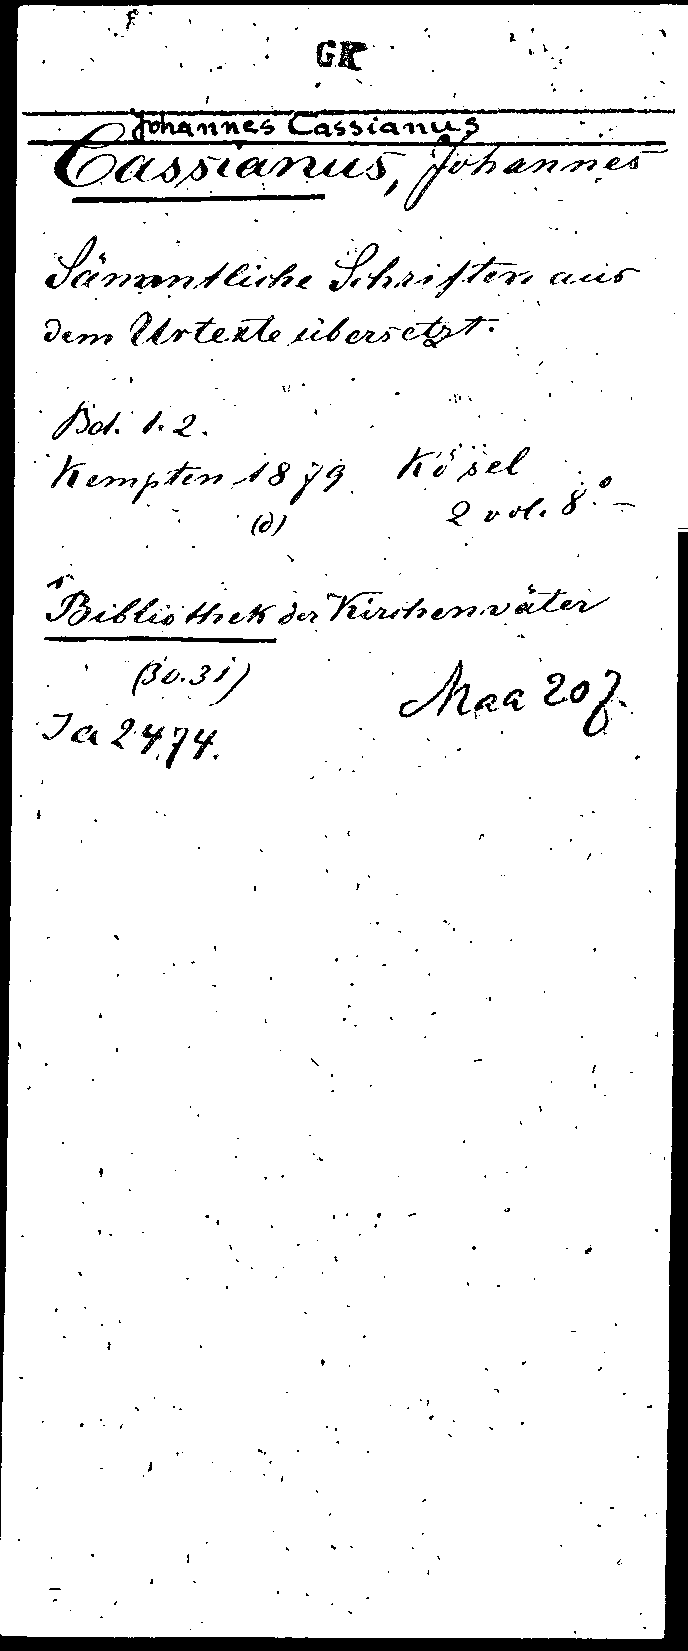 GK
Johannes Cassianus
Cassianus, Johannes
Sämmtliche Schriften aus
dem Urtexte übersetzt.
Bd. 1. 2.
Kempten 1879 Kösel
(d) 2 vol. 8°
Bibliothek der Kirchenväter
(30.31)
Maa 207
Ia 2474.